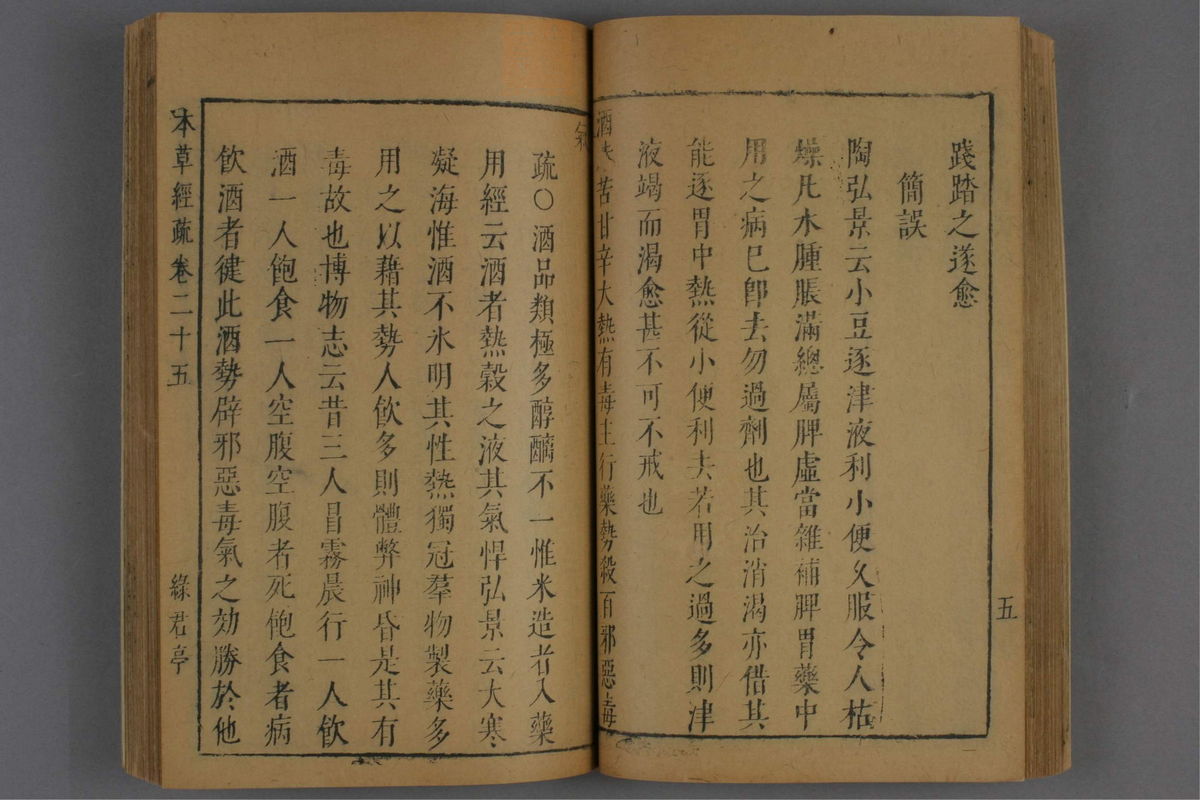 踐踏之遂愈
簡誤
陶弘景云小豆逐津液利小便久服令人枯
燥凡水腫脹滿總屬脾虛當雜補脾胃藥中
用之病已卽去勿過劑也其治消渴亦借其
能逐胃中熱從小便利去若用之過多則津
液竭而渴愈甚不可不戒也
酒味苦甘辛大熱有毒主行藥勢殺百邪惡毒
五
氣
疏○酒品類極多醇醨不一惟米造者入藥
用經云酒者熱穀之液其氣悍弘景云大寒
凝海惟酒不氷明其性熱獨冠羣物製藥多
用之以藉其勢人飲多則體弊神昏是其有
毒故也博物志云昔三人冒霧晨行一人飲
酒一人飽食一人空腹空腹者死飽食者病
飲酒者徤此酒勢辟邪惡毒氣之効勝於他
本草經疏 卷二十五 綠君亭